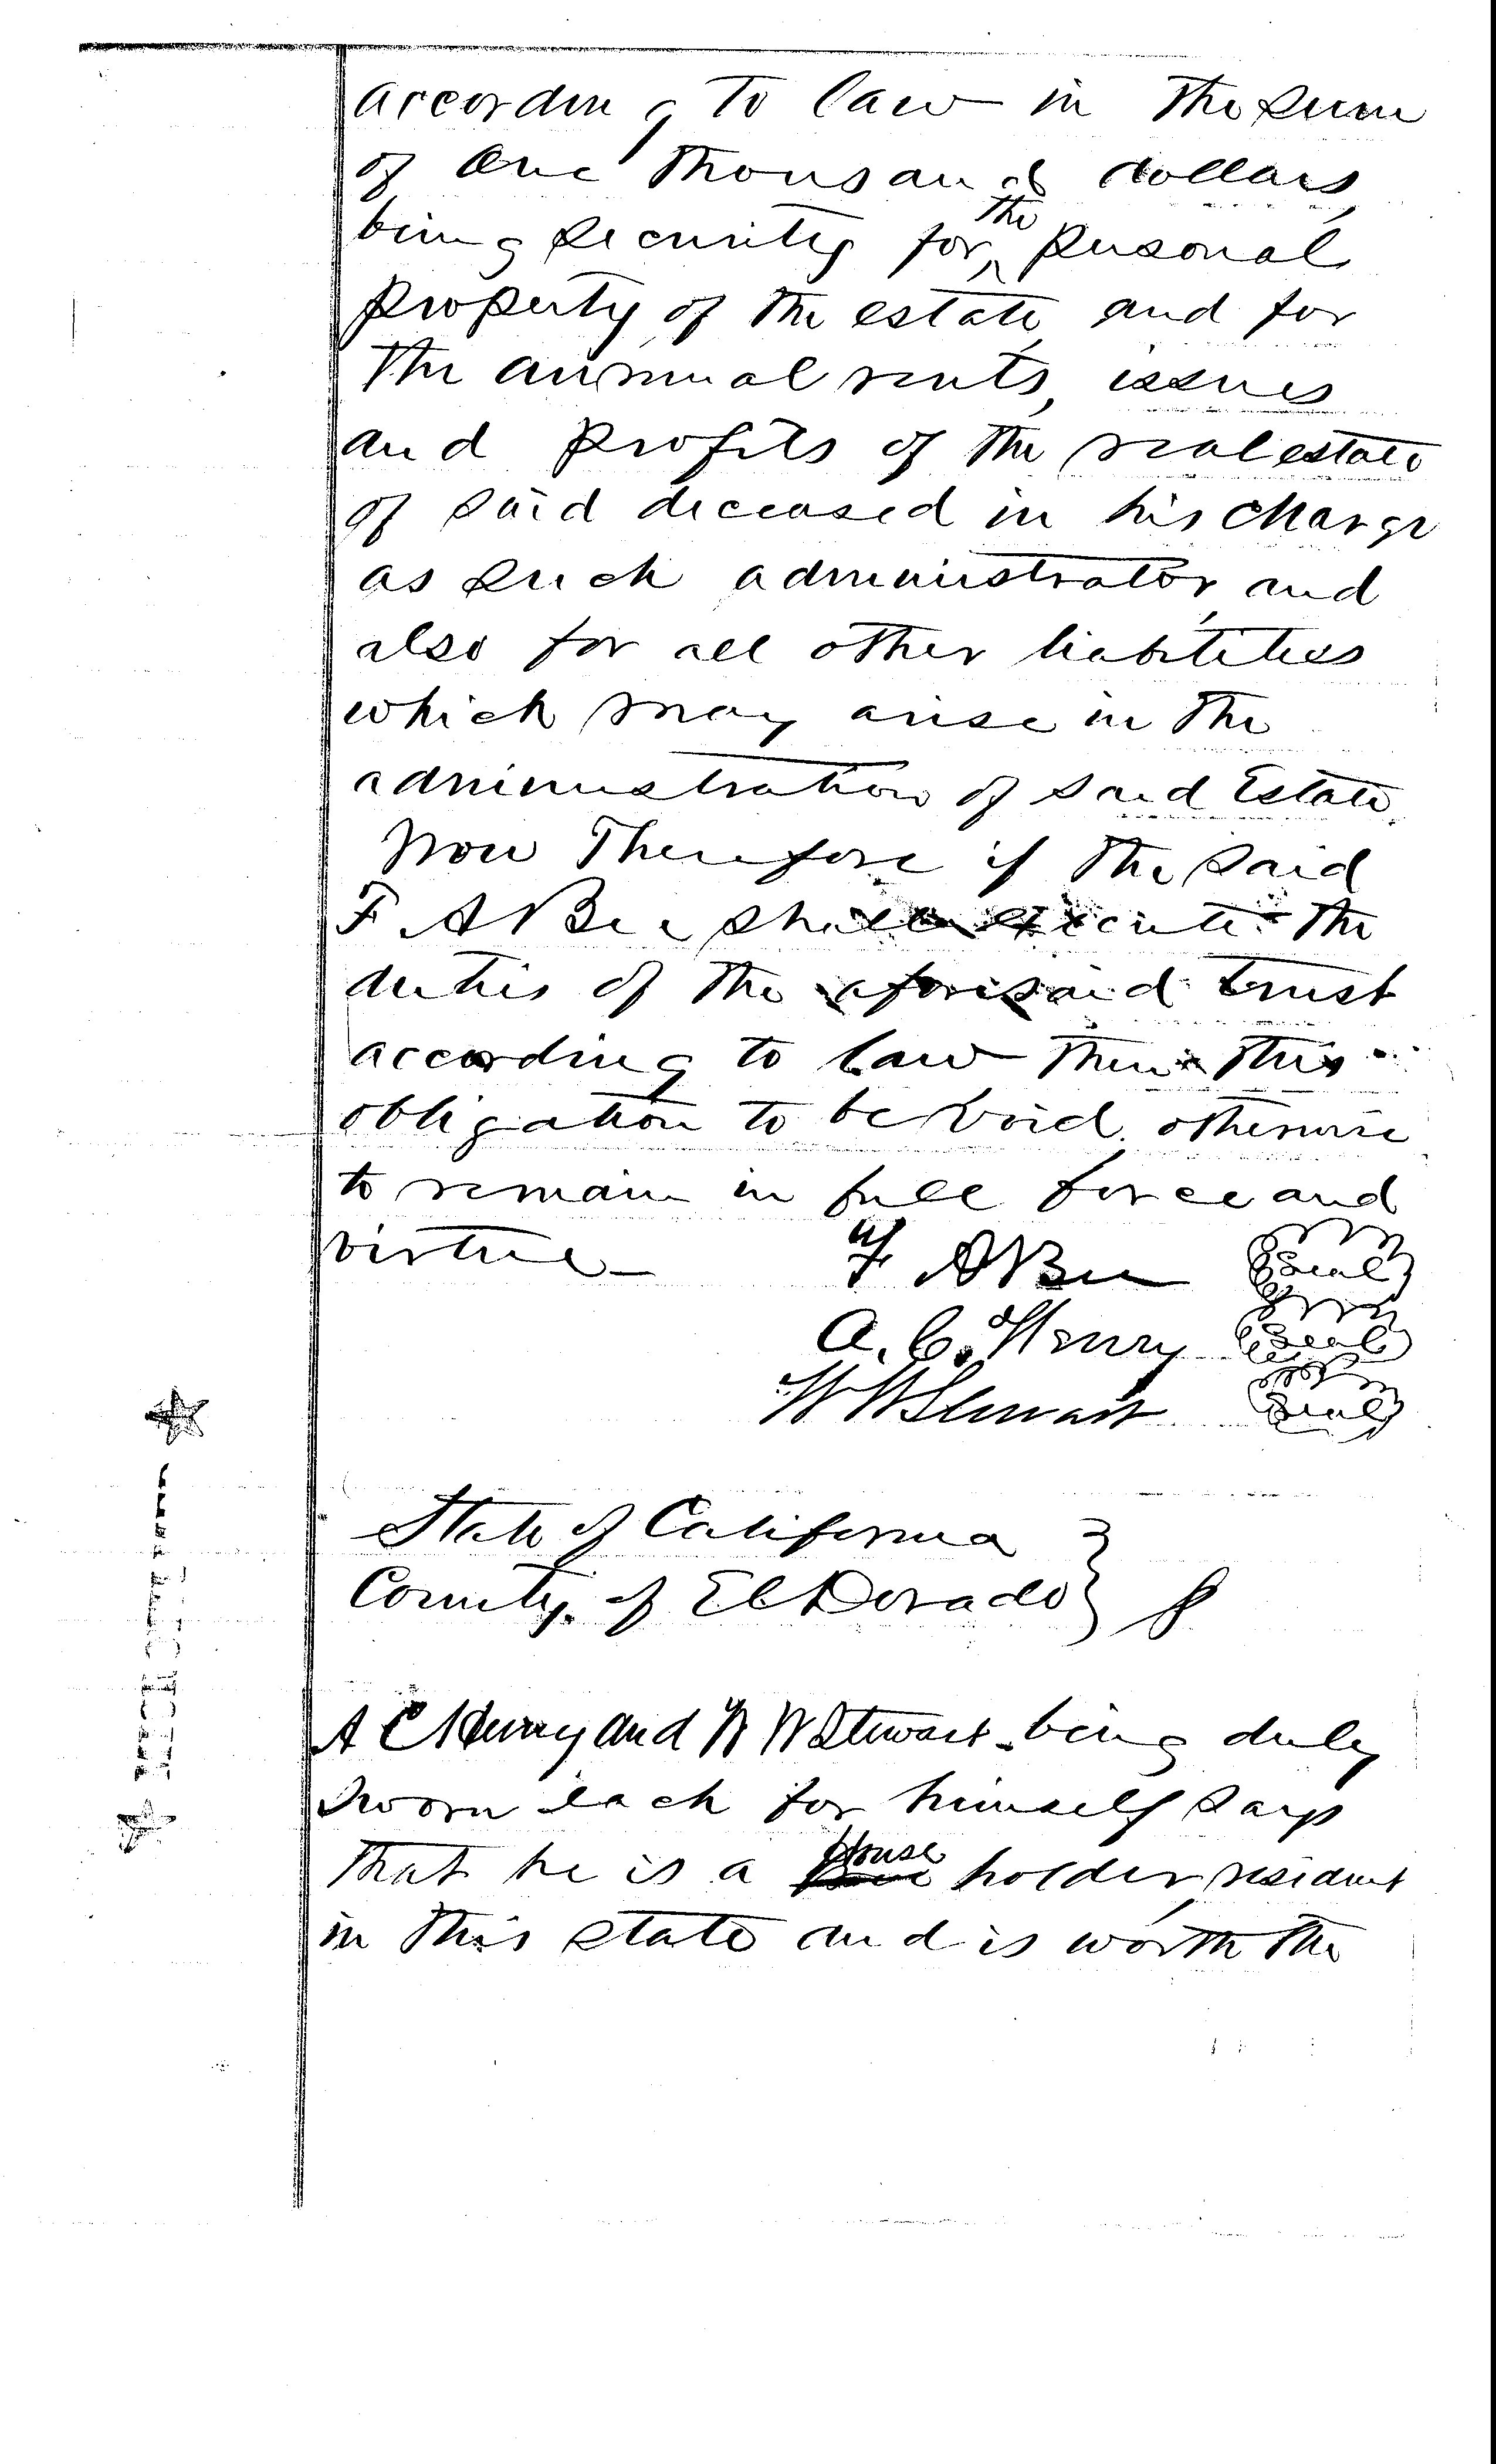 according to law in the sum
of One thousand dollars,
being security for the personal
property of the estate, and for
the annual rents, issues
and profits of the real estate
of said deceased in his charge
as such administrator, and
also for all other liabilities
which may arise in the
administration of said Estate.
Now Therefore if the said
F A Bee shall execute the
duties of the aforesaid trust
according to law then this
obligation to be void, otherwise
to remain in full force and
virtue—
F A Bee Seal
A. C. Henry Seal
W W Stewart Seal
State of California
County of El Dorado } ss
A C Henry and W W Stewart being duly
sworn each for himself says
that he is a House holder, resident
in this state and is worth the